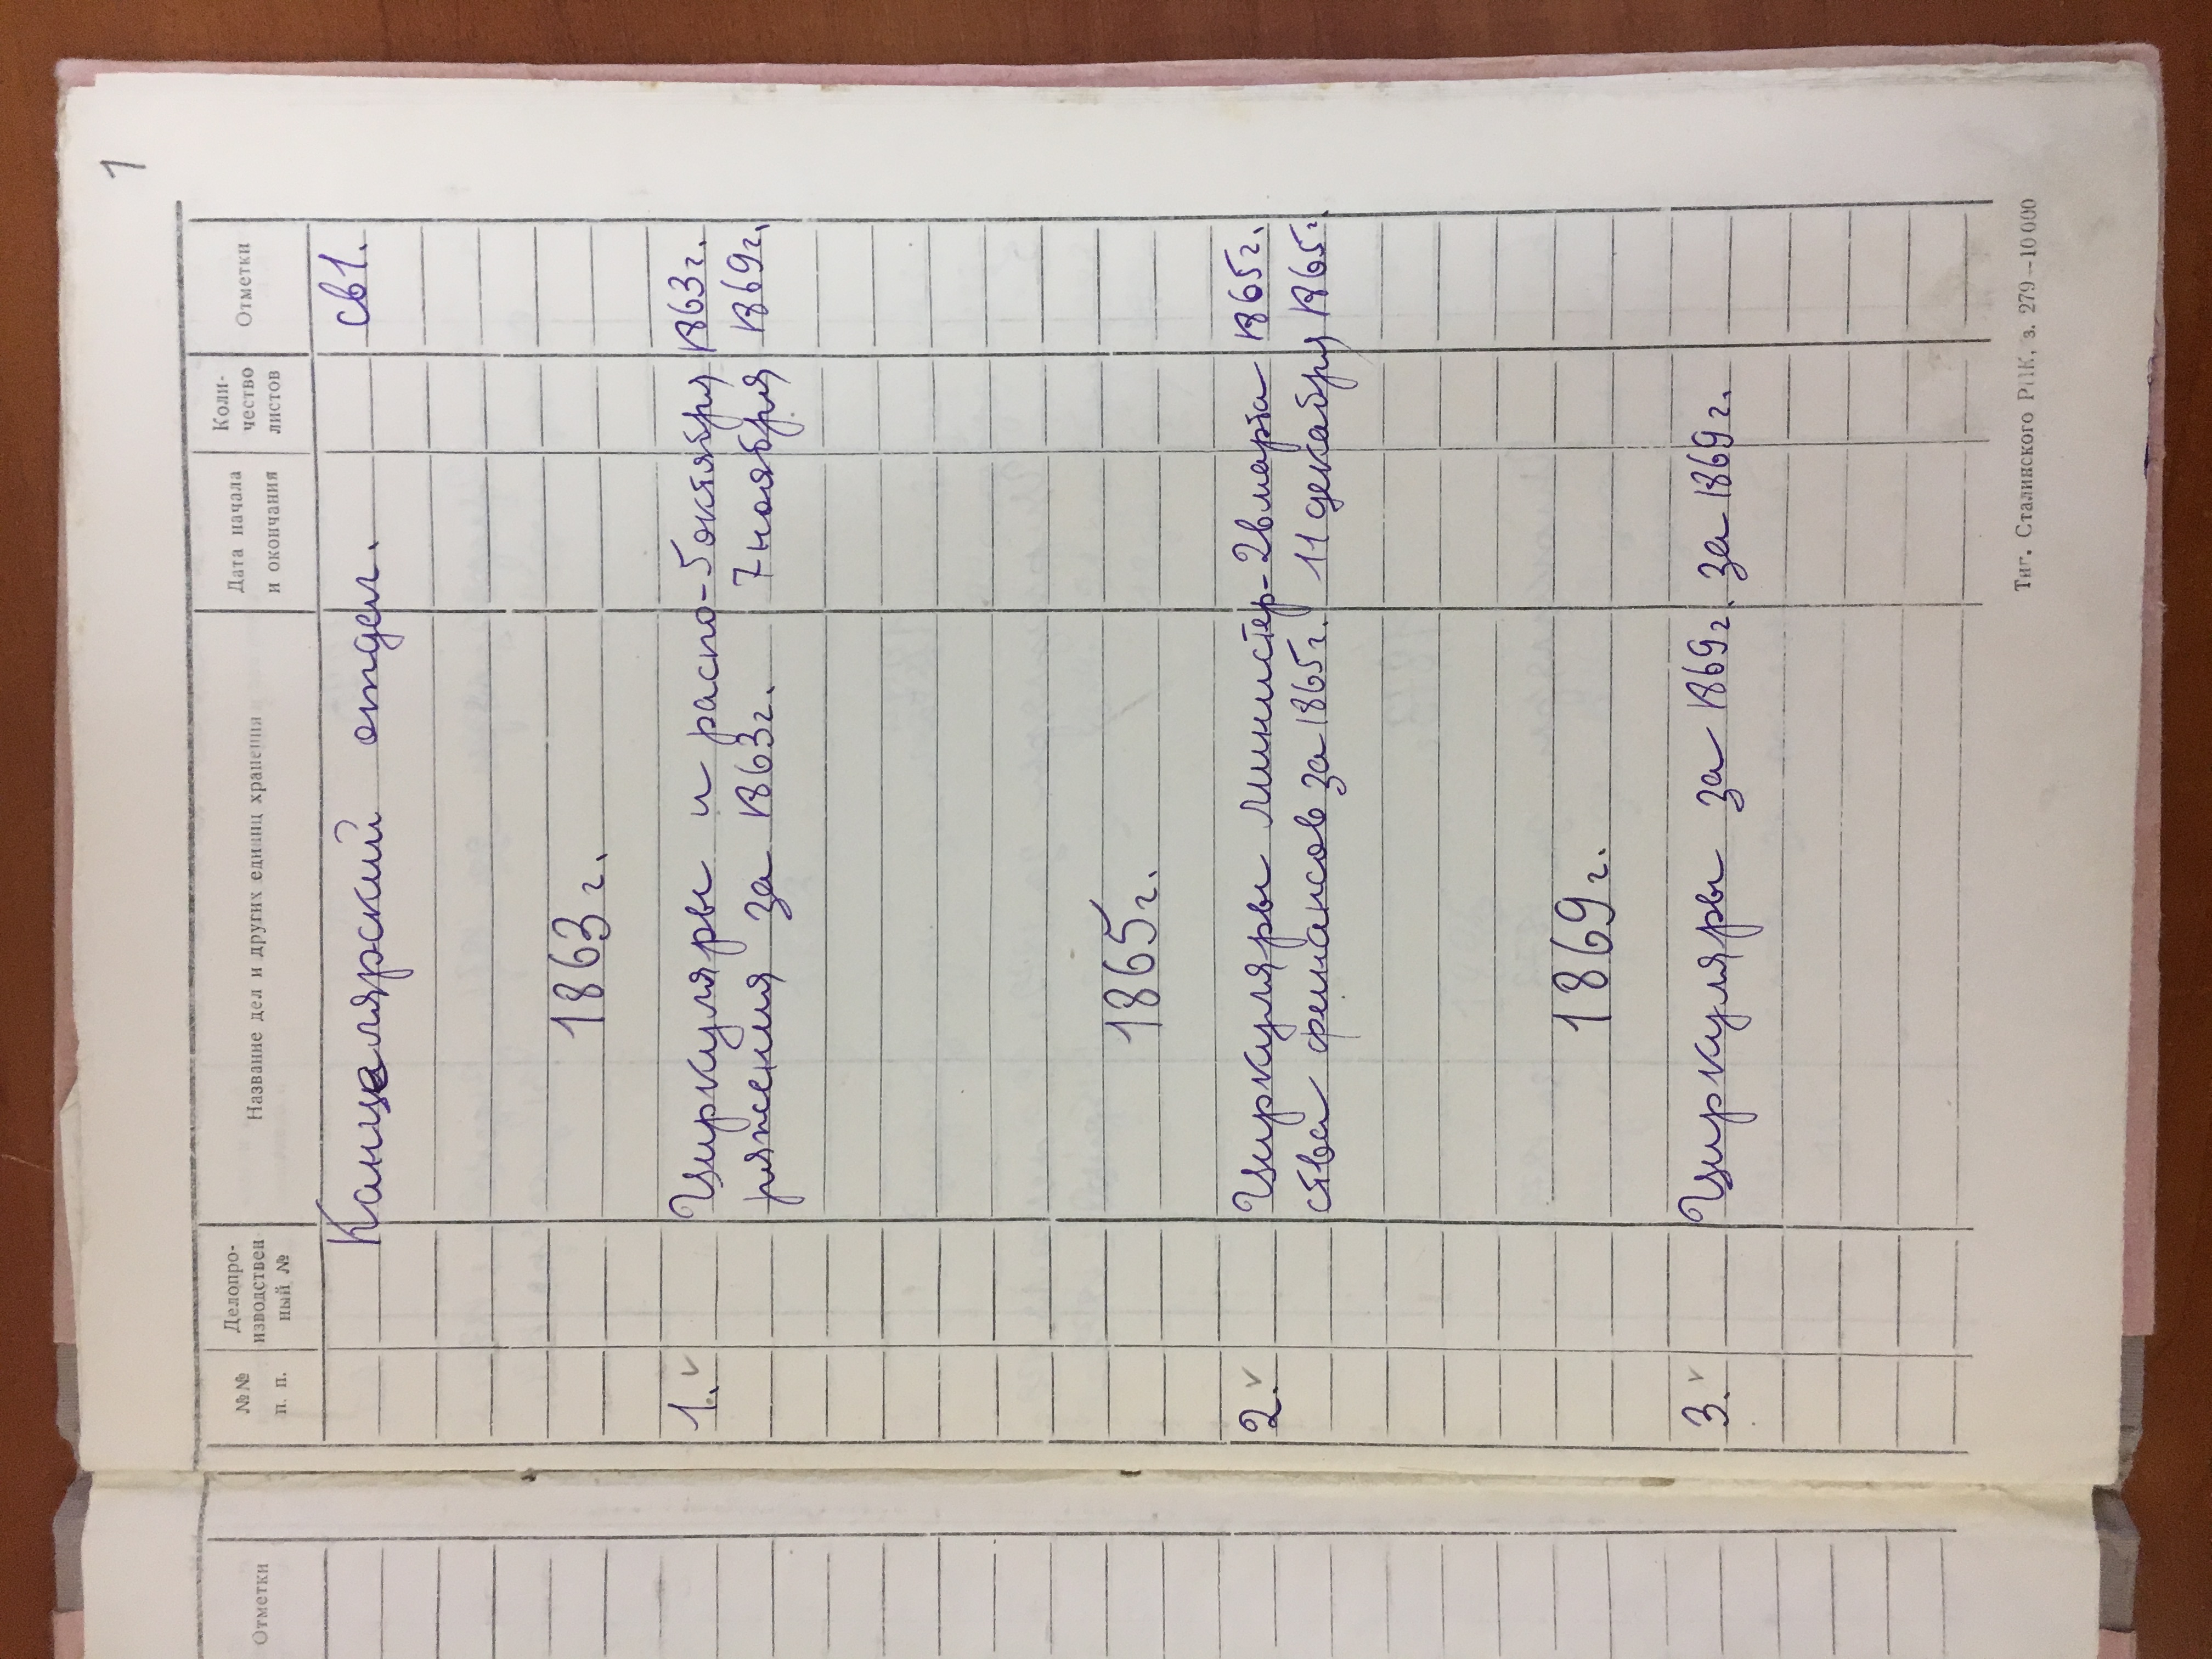 1
№№ п. п.
Делопро-
изводствен
ный №
Название дел и других единиц хранения
Дата начала
и окончания
Коли-
чество
листов
Отметки
Канцелярский отдел. св1.
1863 г.
1. v Циркуляры и распо- 5 октября 1863 г.
ряжения за 1863 г. 7 ноября 1869 г.
1865 г.
2. v Циркуляры Министер- 2 марта 1865 г.
ства финансов за 1865 г. 11 декабря 1865 г.
1869 г.
3. v Циркуляры за 1869 г. за 1869 г.
Тип. Сталинского РПК, з. 279–10 000
Отметки